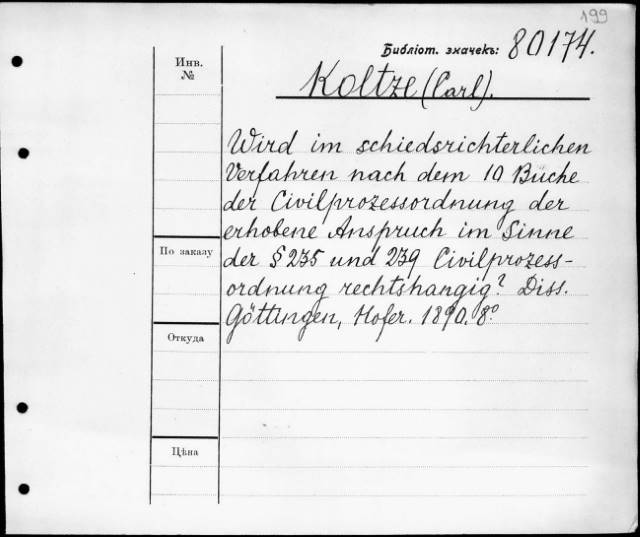 199
Библіот. значекъ: 80174.
Инв.
№
Koltze (Carl).
Wird im schiedsrichterlichen
Verfahren nach dem 10 Buche
der Civilprozessordnung der
erhobene Anspruch im Sinne
der § 235 und 239 Civilprozess-
ordnung rechtshangig? Diss.
Göttingen, Hofer. 1890. 8º
По заказу
Откуда
Цѣна